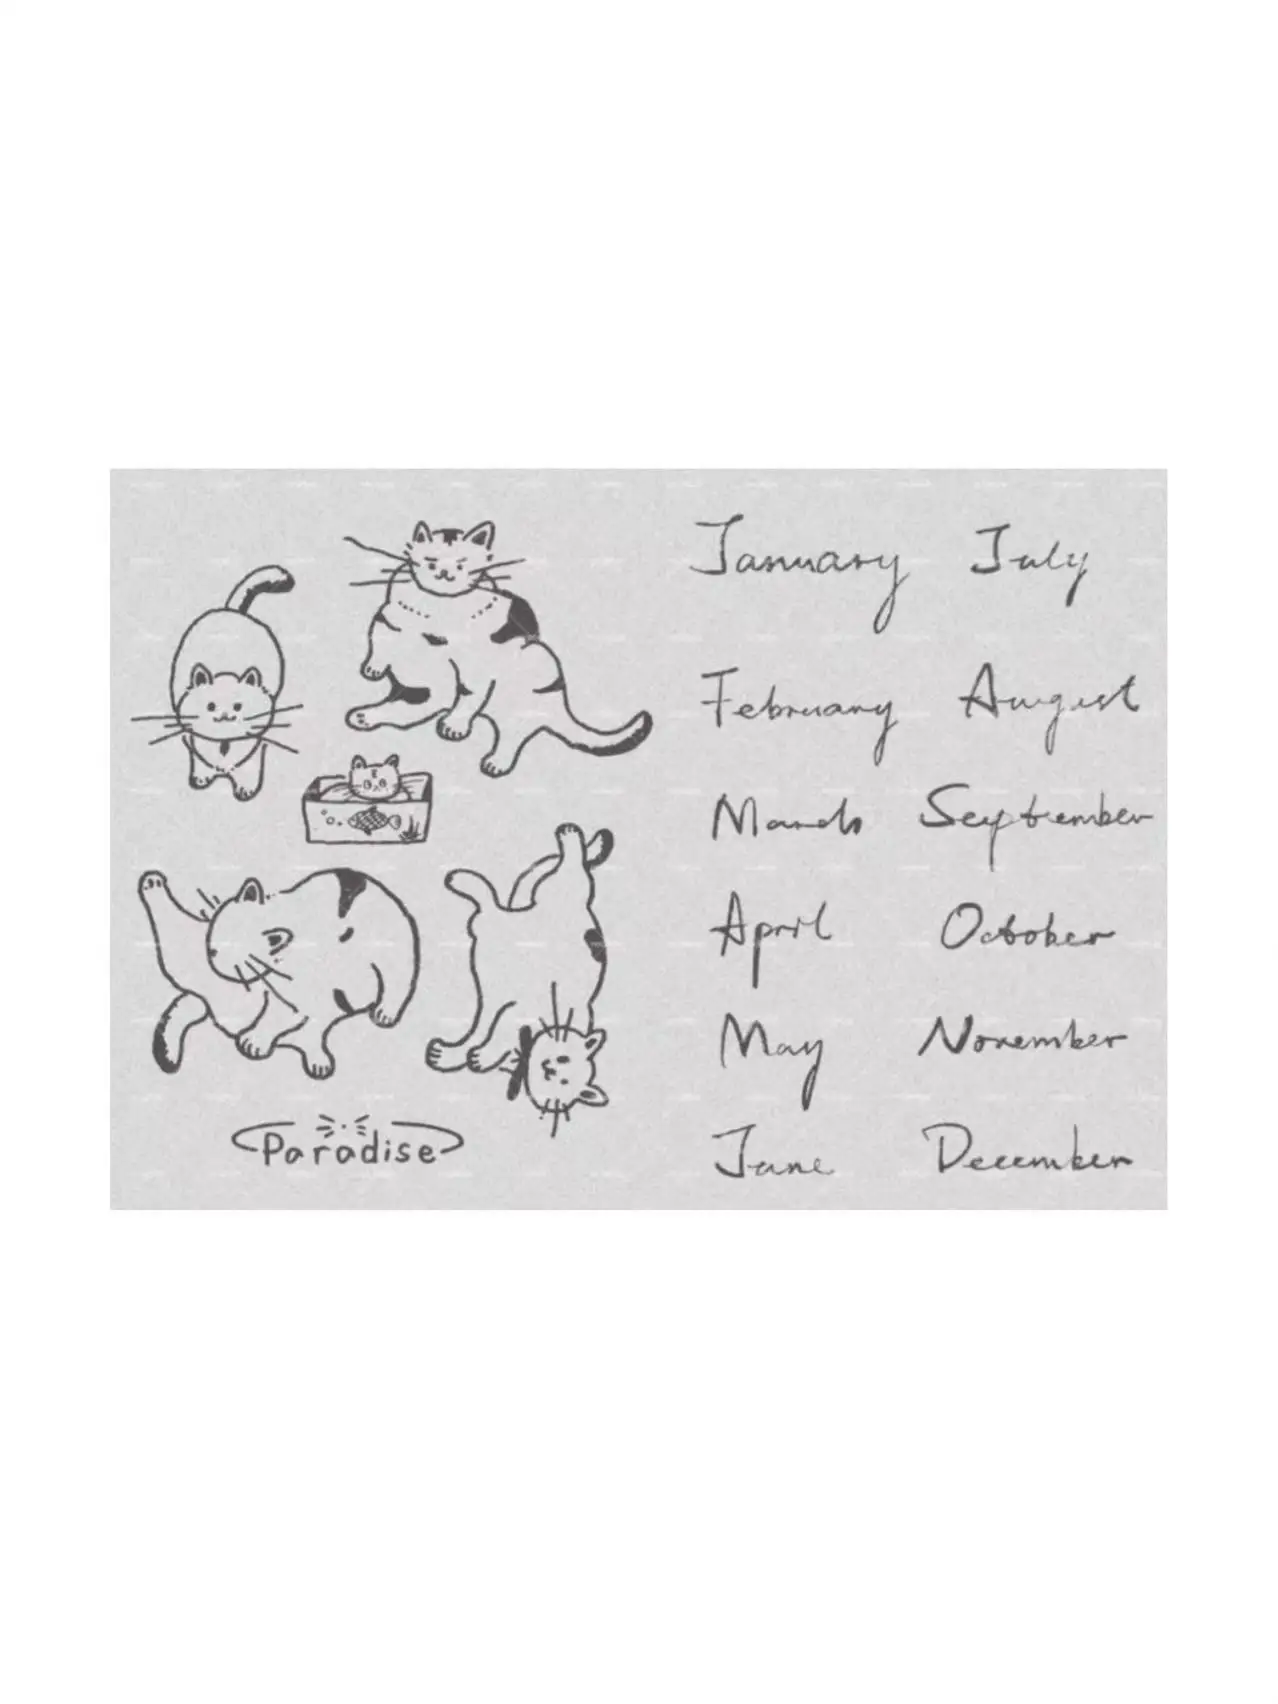 January
February
March
April
May
June
July
August
September
October
November
December
Paradise